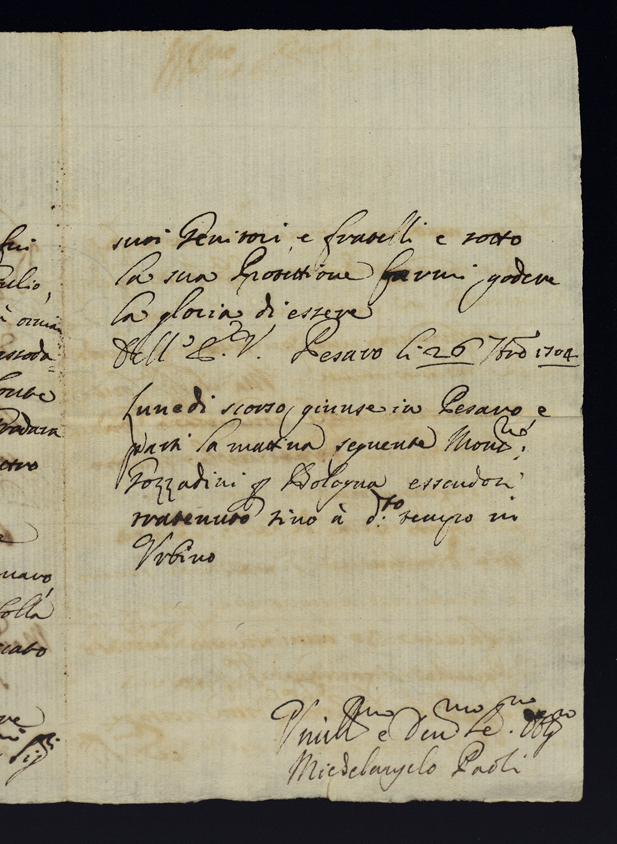 fui
ulio,
suoi Genitori e fratelli e sotto
la sua Protettione farmi godere
la gloria di essere
dell' E. V. Pesaro li 26 7bre 1704
Lunedì scorso giunse in Pesaro e
partì la mattina seguente Monsre
Gozzadini p Bologna essendosi
trattenuto sino à d.to tempo in
Urbino
Umillmo e Devmo Se.re Obgmo
Michelangelo Paoli